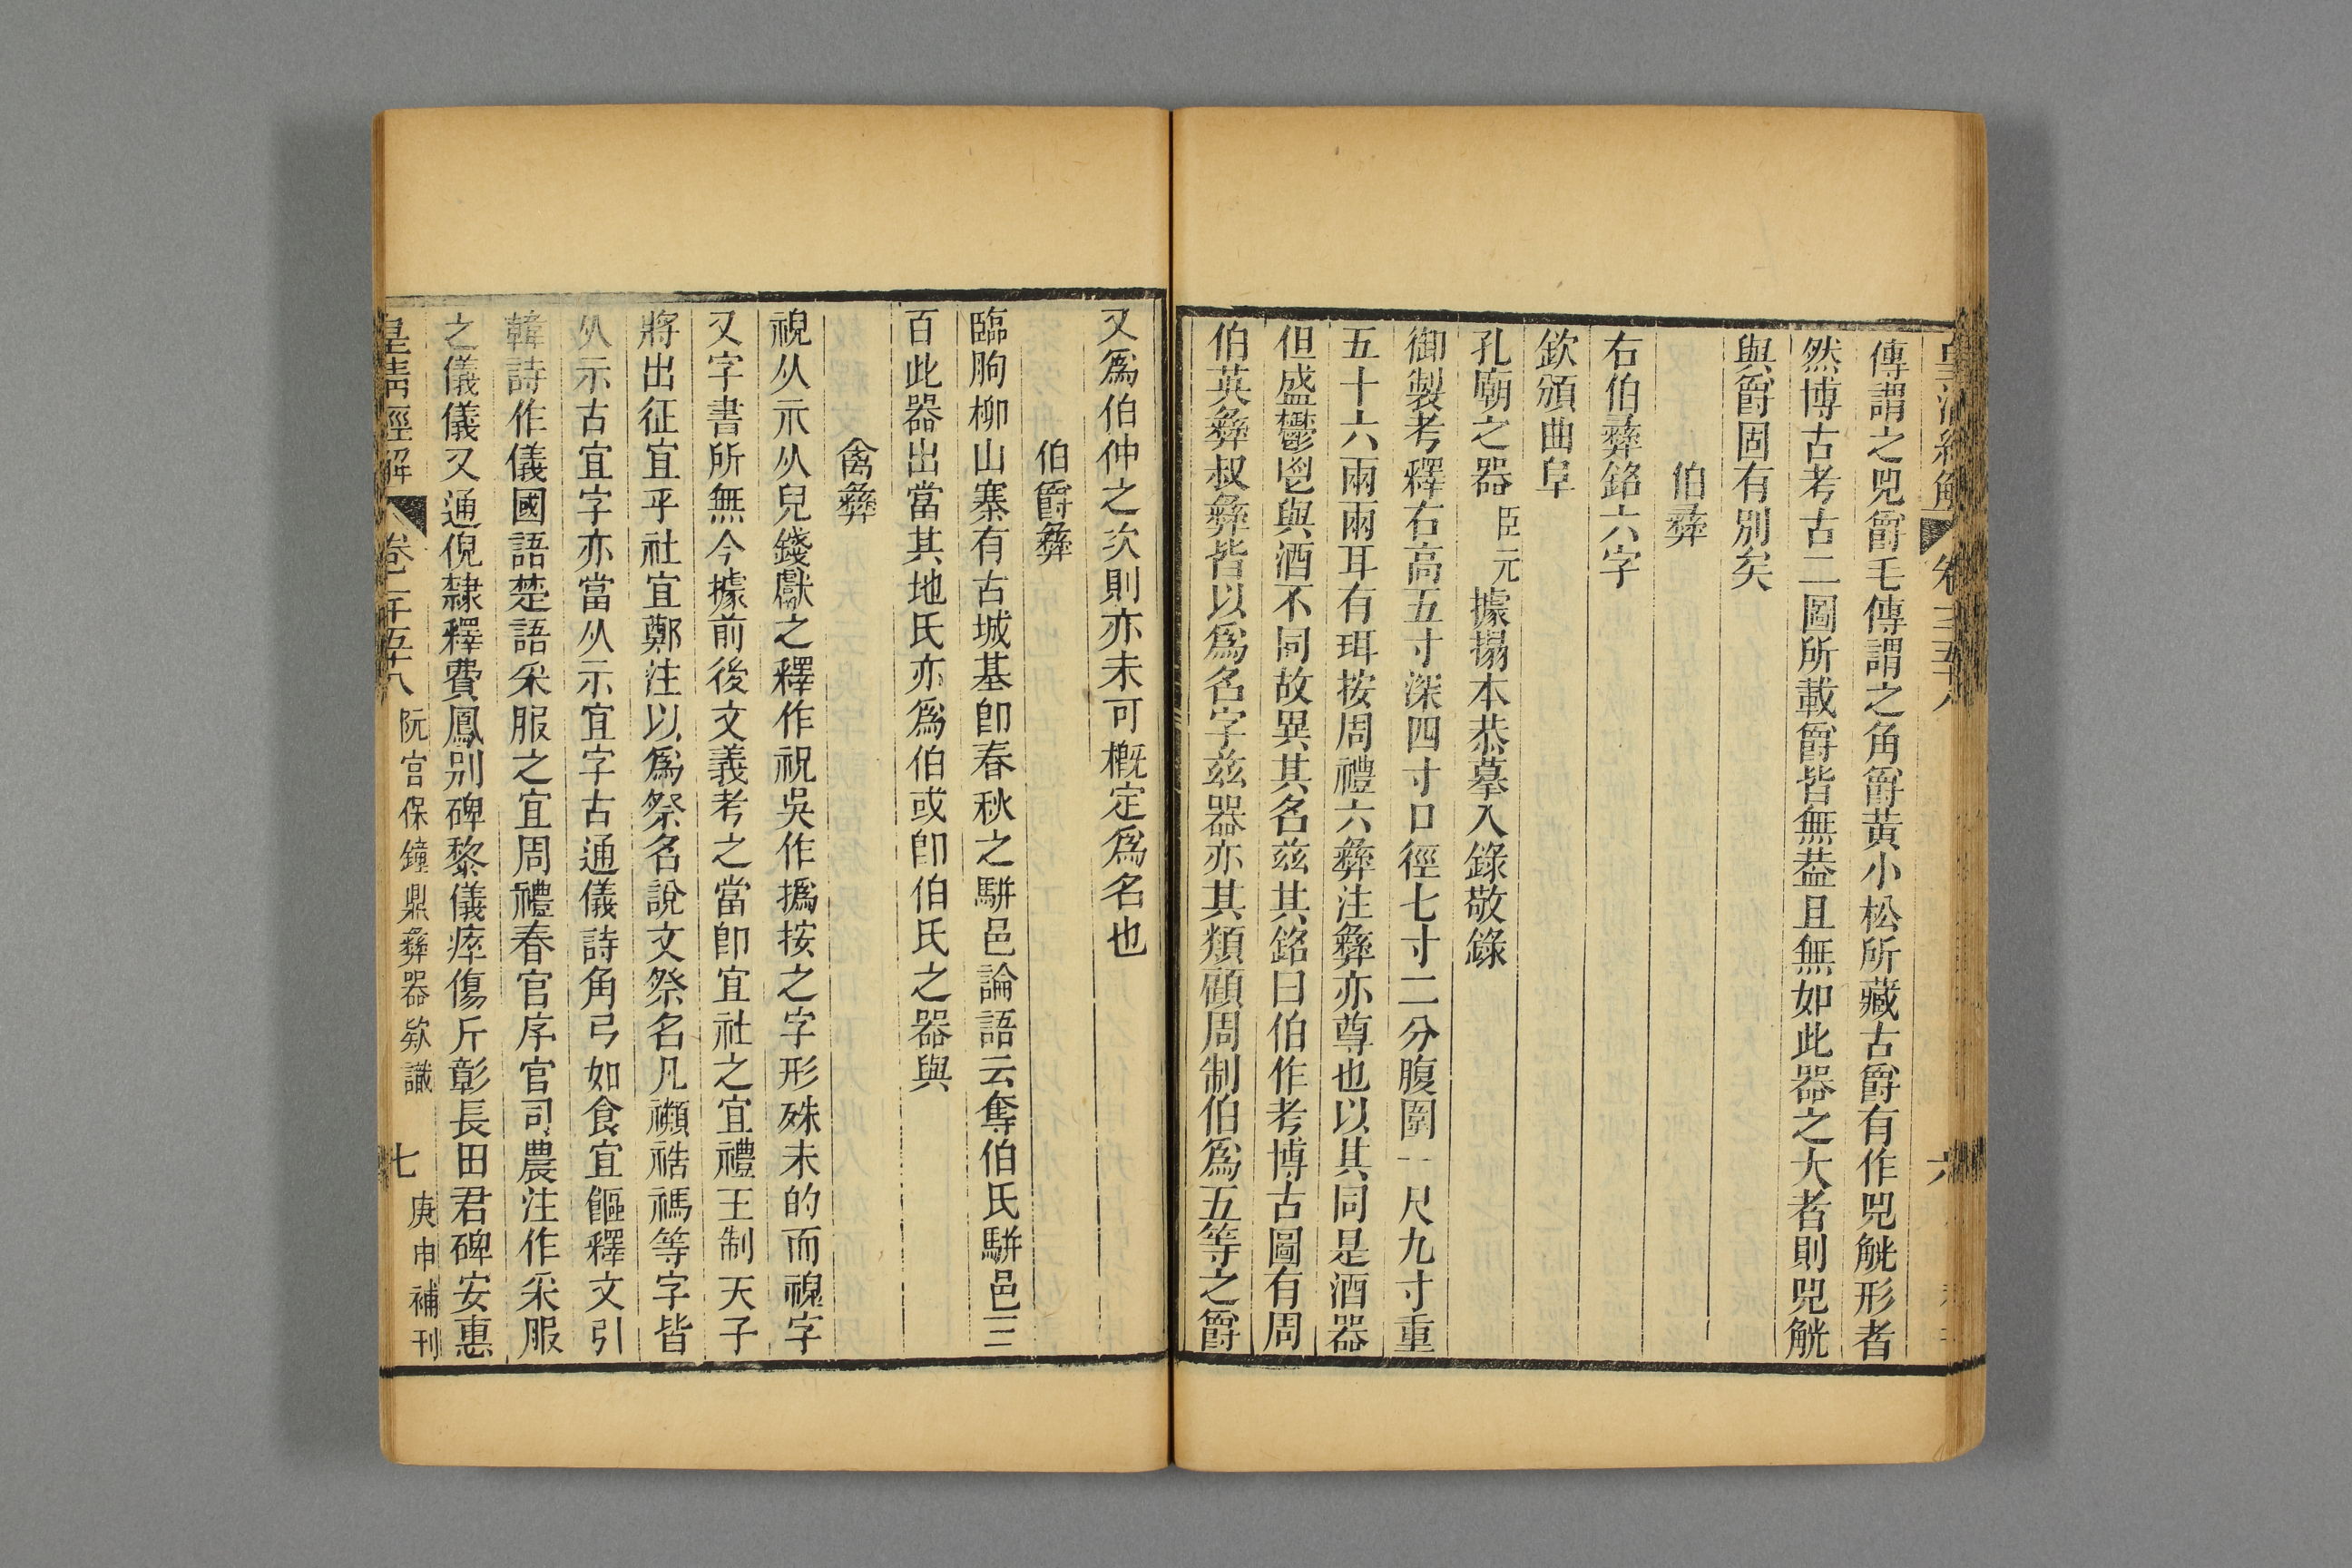 傳謂之兕爵毛傳謂之角爵黃小松所藏古爵有作兕觥形者
然博古考古二圖所載爵皆無葢且無如此器之大者則兕觥
與爵固有別矣
伯彝
右伯彝銘六字
欽頒曲阜
孔廟之器臣元據搨本恭摹入錄敬錄
御製考釋右高五寸深四寸口徑七寸二分腹圍一尺九寸重
五十六兩兩耳有珥按周禮六彝注彝亦尊也以其同是酒器
但盛鬱鬯與酒不同故異其名兹其銘曰伯作考博古圖有周
伯英彝叔彝皆以爲名字兹器亦其類顧周制伯爲五等之爵
又爲伯仲之次則亦未可槪定爲名也
伯爵彝
臨朐柳山寨有古城基卽春秋之駢邑論語云奪伯氏駢邑三
百此器出當其地氏亦爲伯或卽伯氏之器與
禽彝
祝从示从兒錢獻之釋作祝吳作撝按之字形殊未的而禠字
又字書所無今據前後文義考之當卽宜社之宜禮王制天子
將出征宜乎社宜鄭注以爲祭名說文祭名凡禷祰禡等字皆
从示古宜字亦當从示宜字古通儀詩角弓如食宜饇釋文引
韓詩作儀國語楚語采服之宜周禮春官序官司農注作采服
之儀儀又通倪隸釋費鳳別碑黎儀瘁傷斤彰長田君碑安惠
皇淸經解 卷一千五十八 阮宮保鐘鼎彝器欵識 七 庚申補刊